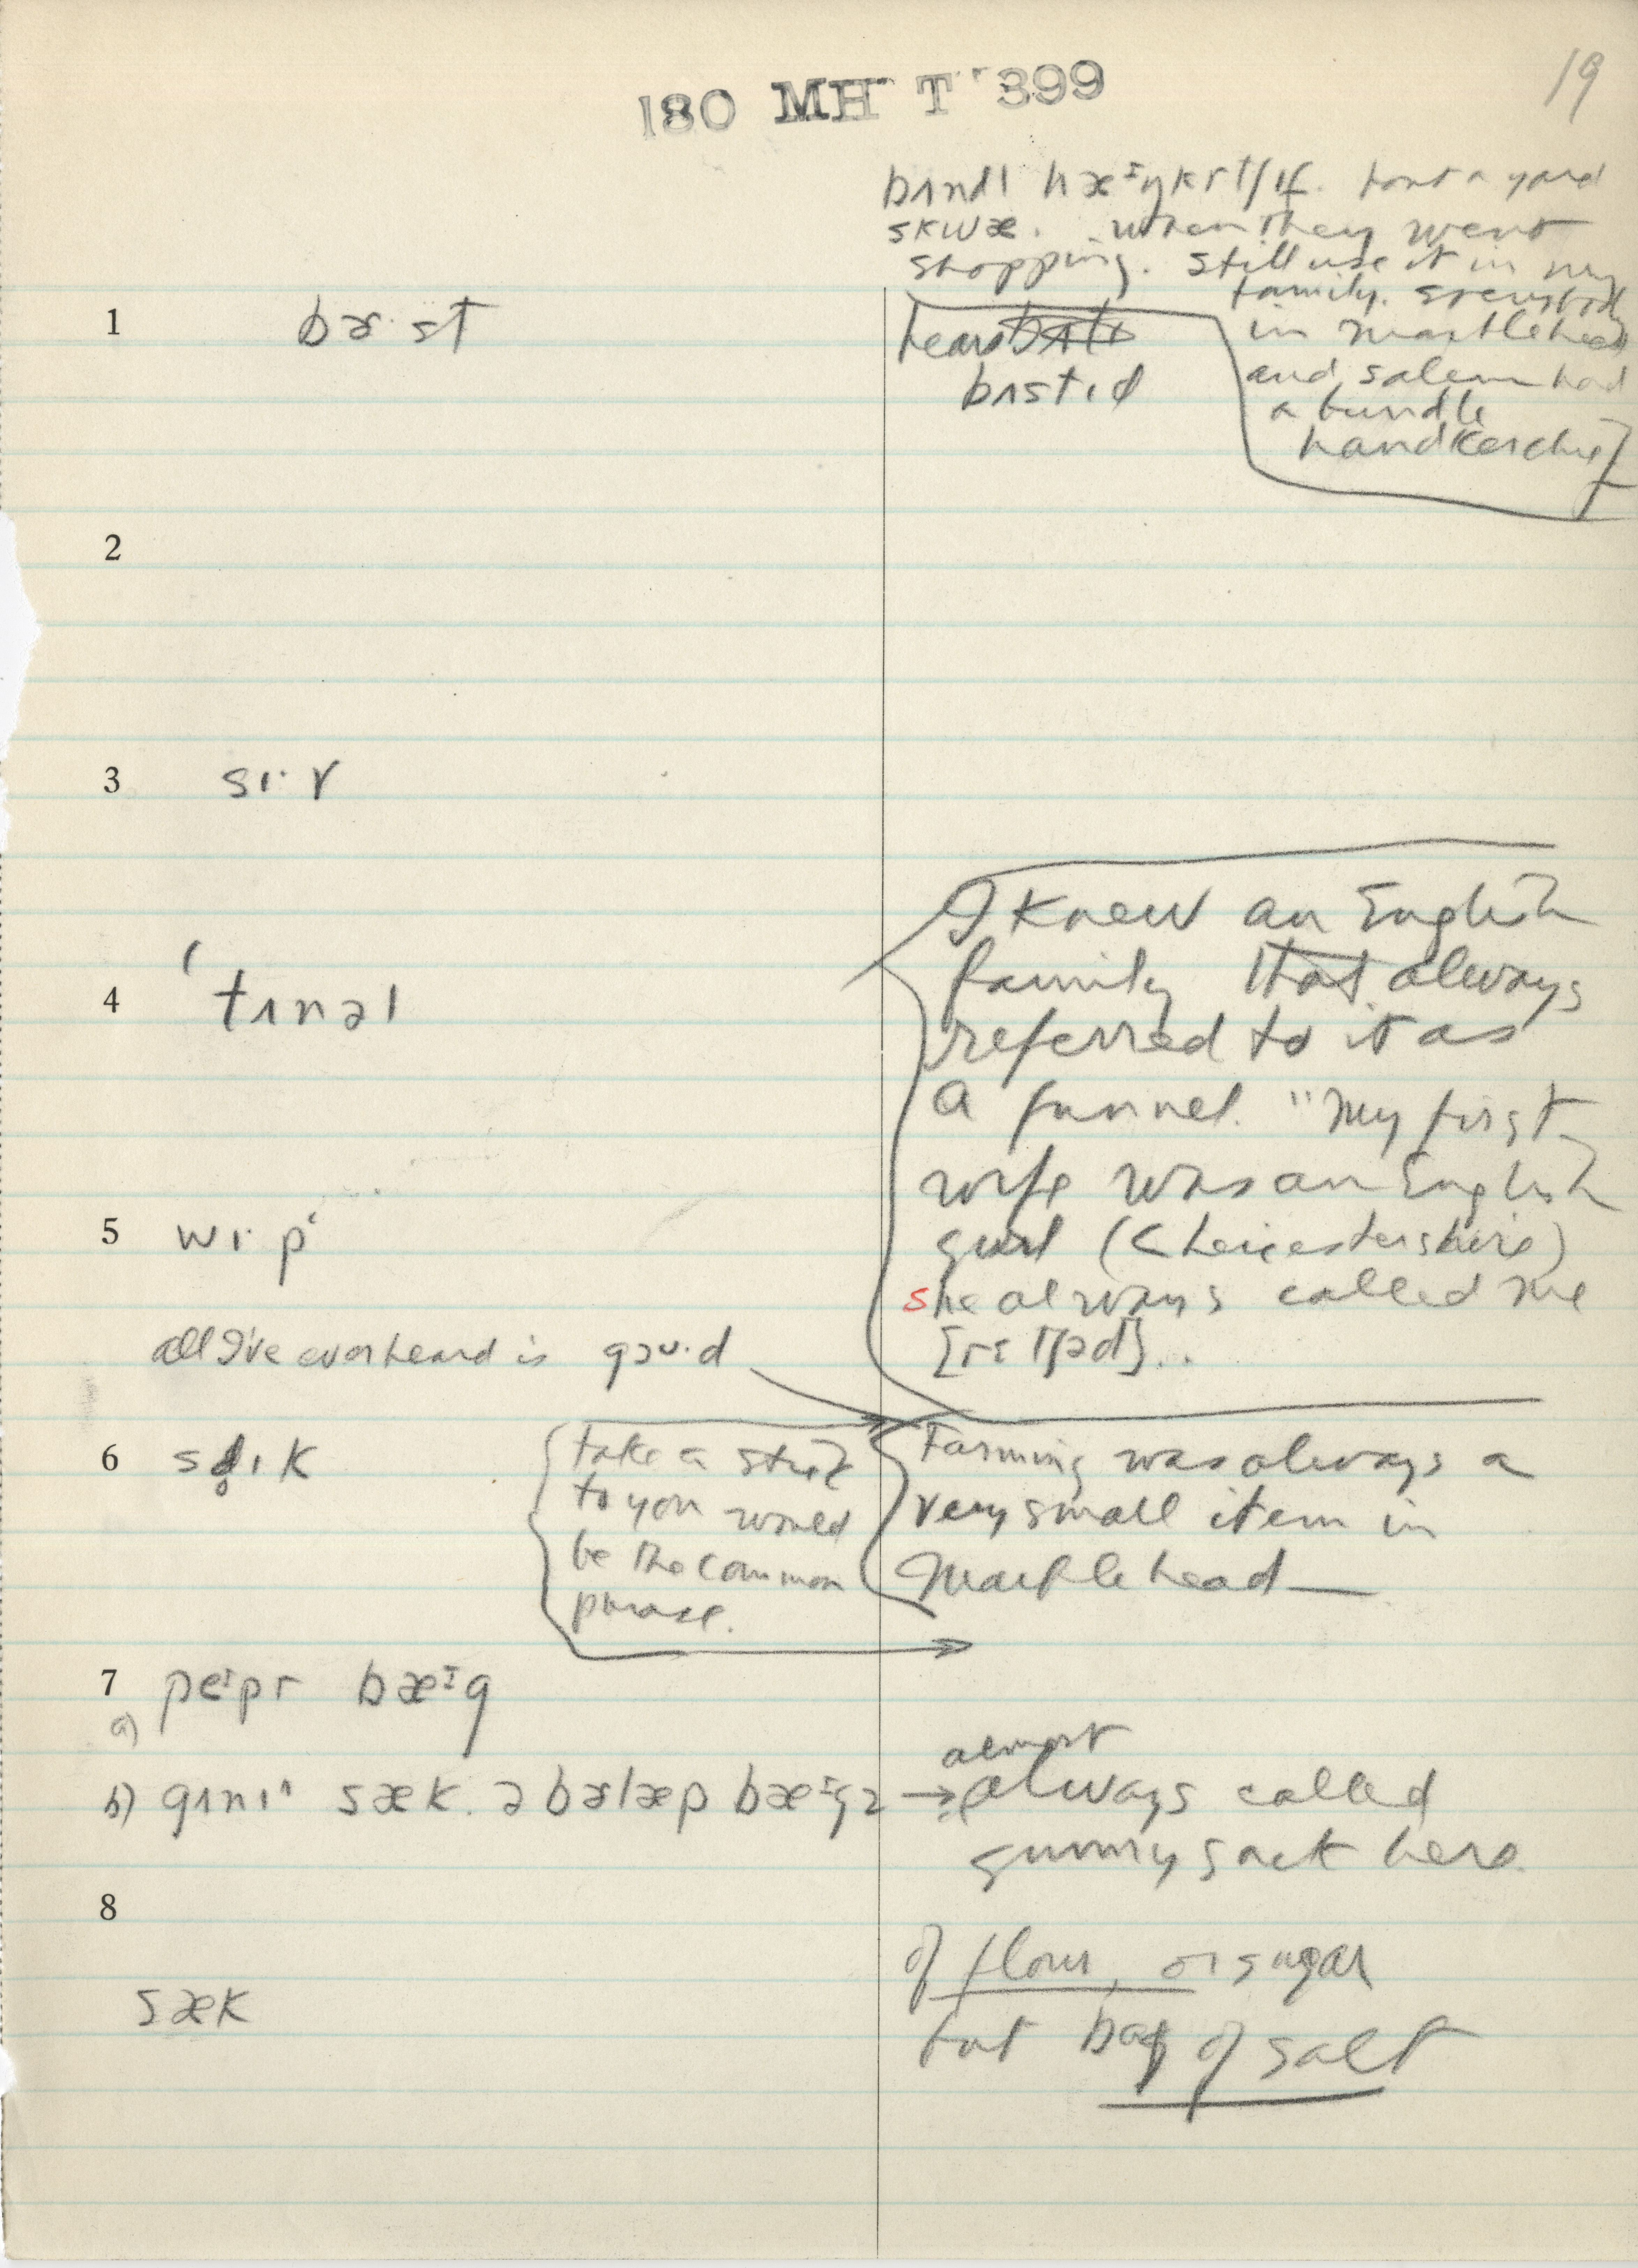 180 MH T 399
19
bʌndl hæᶦŋkrtʃɪf. bout a yard
skwæ. when they went
shopping. still use it in my
family. everybody
in Marblehead
and Salem had
a bundle
handkerchief
1 bɚ·st
heard
bʌstɪd
2
3 sɪ·r
I knew an English
family that always
referred to it as
a funnel. "My first
wife was an English
girl (< Leicestershire)
she always called me
4 'tʌnəl
5 wɪ·p‘
all I've ever heard is goᴜ·d
6 slɪk
take a
to you would
be the common
phrase.
Farming was always a
very small item in
Marblehead —
7 a) peᶦpr bæᶦg
b) gʌnɪ^ sæk. ə bɚlæp bæᶦg → almost always called
gunny sack here.
8
sæk
of flour, or sugar
but bag of salt